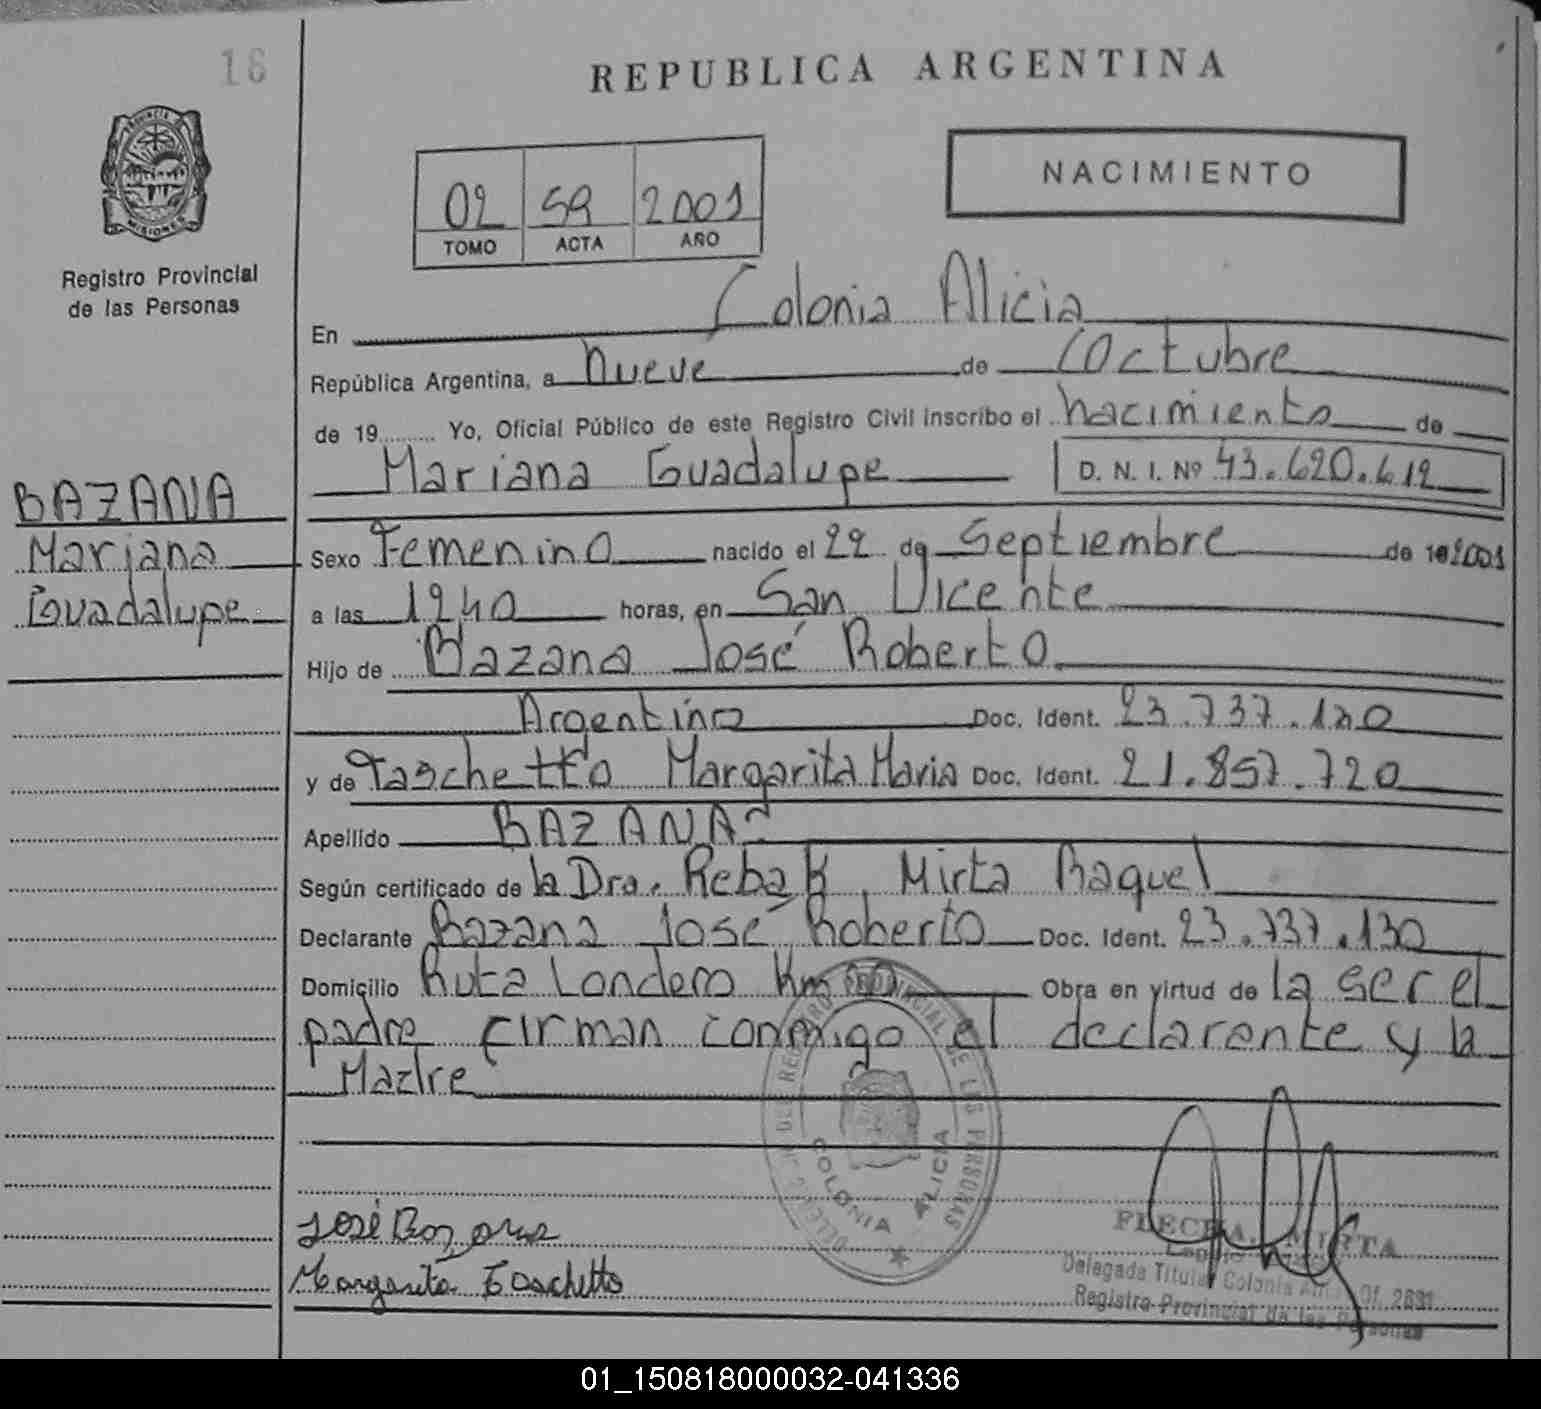 16
REPUBLICA ARGENTINA
PROVINCIA DE
MISIONES
Registro Provincial
de las Personas
NACIMIENTO
02 59 2001
TOMO ACTA AÑO
En Colonia Alicia
República Argentina, a Nueve de Octubre
de 19 Yo, Oficial Público de este Registro Civil inscribo el Nacimiento de
Mariana Guadalupe D. N. I. Nº 43.620.612
BAZANA
Mariana
Guadalupe
Sexo Femenino nacido el 22 de Septiembre de 2001
a las 1240 horas, en San Vicente
Hijo de Bazana José Roberto
Argentino Doc. Ident. 23.737.130
y de Taschetto Margarita Maria Doc. Ident. 21.857.720
Apellido BAZANA
Según certificado de la Dra. Rebak, Mirta Raquel
Declarante Bazana José Roberto Doc. Ident. 23.737.130
Domicilio Ruta Londero Km Obra en virtud de la ser el
padre firman conmigo el declarante y la
Madre
DEL REGISTRO PROVINCIAL DE LAS PERSONAS
COLONIA ALICIA
José Bazana
Margarita Taschetto
MIRTA
Delegada Titular Colonia
Registro Provincial de las Personas
01_150818000032-041336